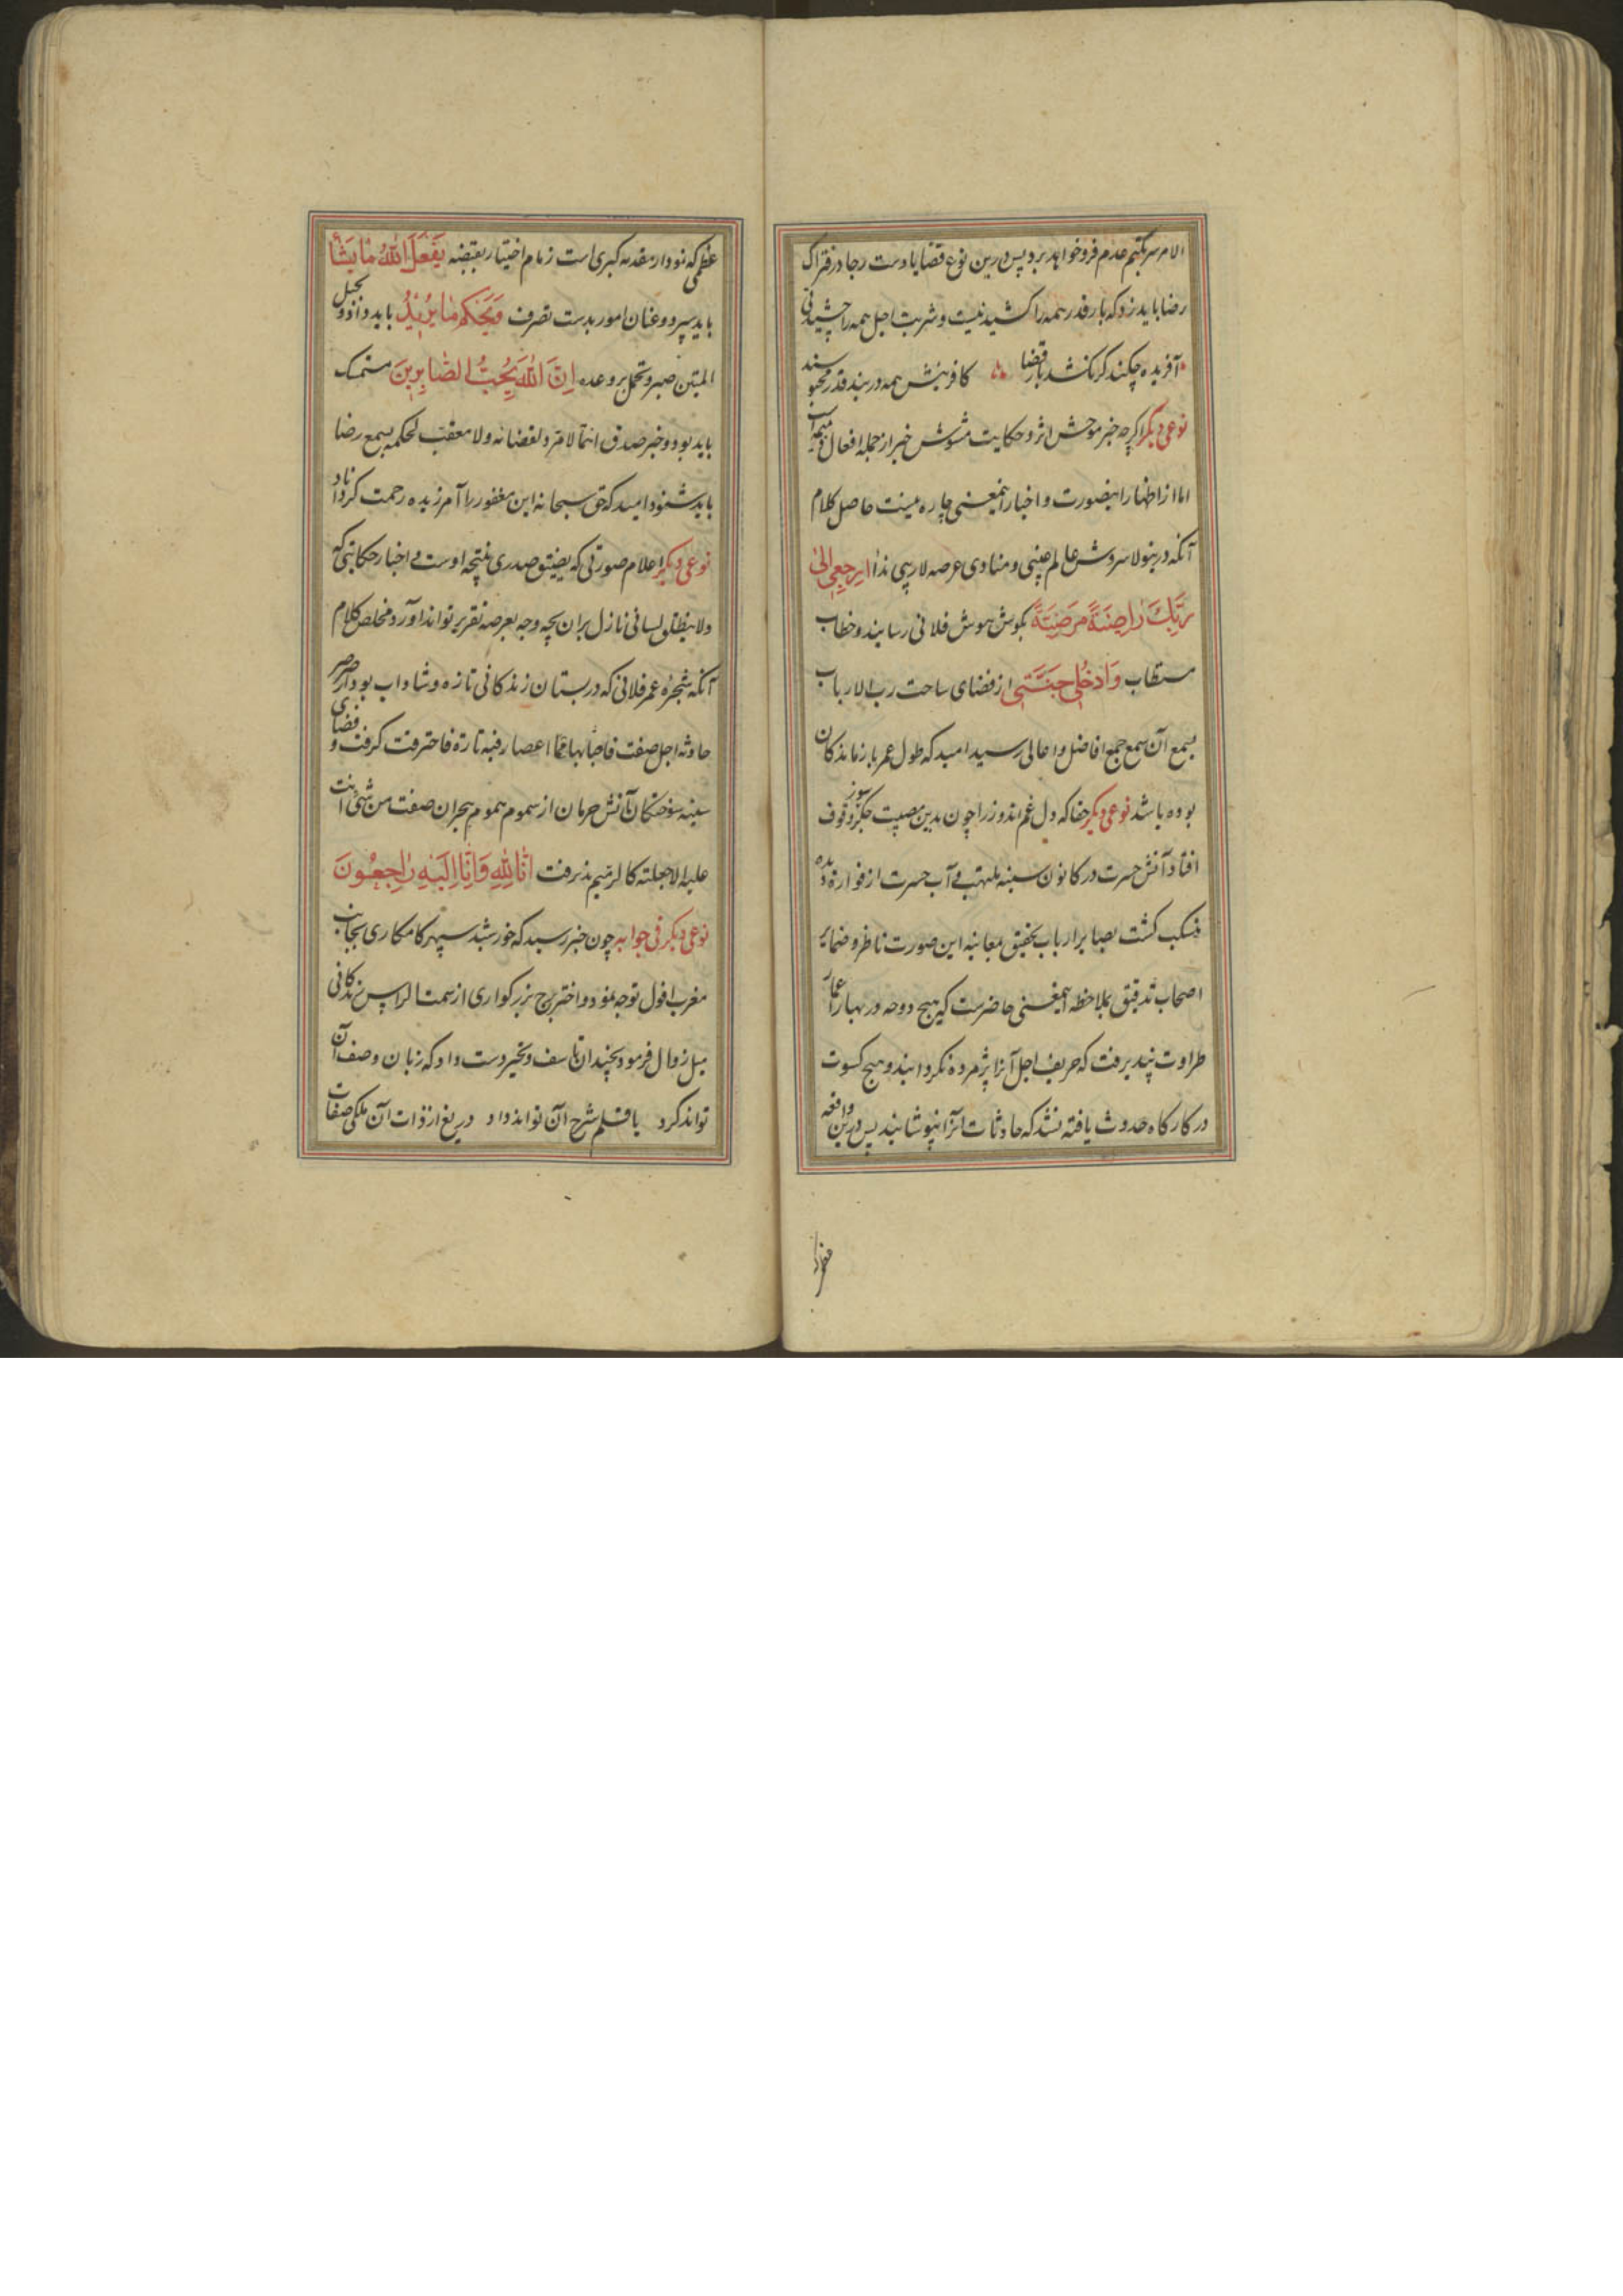 الامر سر بکتم عدم فرو خواهد برد پس درین نوع قضایا دست رجا در فتراک
رضا باید زد که بار قدر همه را کشیدنیست و شربت اجل همه را چشیدنی
آفریده چکند کر نکشد بار قضا کافرینش همه در بند قدر محبوسند
نوعی دیکر اکرچه خبر موحش اثر و حکایت مشوش خبر از جمله افعال ذمیمه است
اما از اظهار اینصورت و اخبار اینمعنی چاره نیست حاصل کلام
آنکه درینولا سروش عالم غیبی و منادی عرصه لاریبی ندا ارجعی الی
ربک راضیة مرضیة بکوش هوش فلانی رسانید و خطاب
مستطاب وادخلی جنتی از فضای ساحت رب الارباب
بسمع آن سمع جمع افاضل و اعالی رسید امید که طول عمر بازماندکان
بوده باشد نوعی دیکر حقا که دل غم اندوز را چون بدین مصیبت جکرسوز وقوف
افتاد آتش حسرت در کانون سینه ملتهب و آب حسرت از فواره دیده
منسکب کشت بصایر ارباب تحقیق بمعاینه این صورت ناظر و ضمایر
اصحاب تدقیق بملاحظه اینمعنی حاضرست که هیچ دوحه در بهار اعمار
طراوت نپذیرفت که خریف اجل آنرا پژمرده نکردانید و هیچ کسوت
در کارکاه حدوث یافته نشد که حادثات آنرا نپوشانید پس درین واقعه
عظمی که نمودار مقدمه کبری است زمام اختیار بقبضه یفعل الله ما یشآء
باید سپرد و عنان امور بدست تصرف و یحکم ما یرید باید داد و بحبل
المتین صبر و تحمل بر وعده ان الله یحب الصابرین متمسک
باید بود و خبر صدق اثر لا مرد لقضائه ولا معقب لحکمه بسمع رضا
باید شنود امید که حق سبحانه این مغفور را آمرزیده رحمت کرداناد
نوعی دیکر اعلام صورتی که یضیق صدری نتیجه اوست و اخبار حکایتی که
ولا ینطلق لسانی نازل بران بچه وجه بعرصه تقریر تواند آورد مخلص کلام
آنکه شجره عمر فلانی که در بستان زندکانی تازه و شاداب بود از صرصر
حادثه اجل صفت فاصابها اعصار فیه نار فاحترقت کرفت و فضای
سینه سوختکان آتش حرمان از سموم هموم هجران صفت من شیء اتت
علیه الا جعلته کالرمیم پذیرفت انا لله وانا الیه راجعون
نوعی دیکر فی جوابه چون خبر رسید که خورشید سپهر کامکاری بجانب
مغرب افول توجه نمود و اختر برج بزرکواری از سمت الراس زندکانی
میل زوال فرمود چندان تاسف و تحیر دست داد که زبان وصف آن
تواند کرد یا قلم شرح آن تواند داد دریغ از ذات آن ملکی صفات